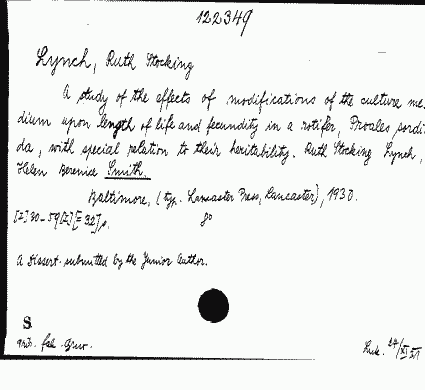 122349
Lynch, Ruth Stocking
A study of the effects of modifications of the culture me-
dium upon length of life and fecundity in a rotifer, Proales sordi-
da, with special relation to their heritability. Ruth Stocking Lynch,
Helen Berenice Smith.
Baltimore, (typ. Lancaster Press, Lancaster), 1930.
80
A Dissert. submitted by the Junior Author.
S.